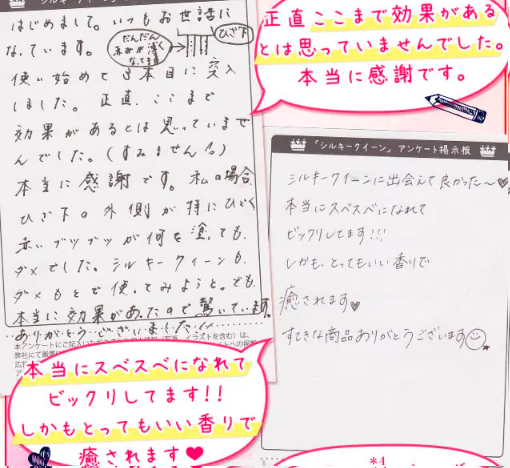 はじめまして。いつもお世話に
なっています。
だんだん
赤みが薄く
なってます
ひざ下
使い始めて3本目に突入
しました。正直、ここまで
効果があるとは思っていませ
んでした。(すみません💦)
本当に感謝です。私の場合
ひざ下の外側が特にひどく
赤いブツブツが何を塗っても、
ダメでした。シルキークイーンも、
ダメもとで使ってみようと。でも
本当に効果があったので驚いています。
ありがとうございました!!
正直ここまで効果がある
とは思っていませんでした。
本当に感謝です。
「シルキークイーン」アンケート掲示板
シルキークイーンに出会えて良かった～♥
本当にスベスベになれて
ビックリしてます!!!
しかも、とってもいい香りで
癒されます♥
すてきな商品ありがとうございます☺
本当にスベスベになれて
ビックリしてます!!
しかもとってもいい香りで
癒されます♥
*4